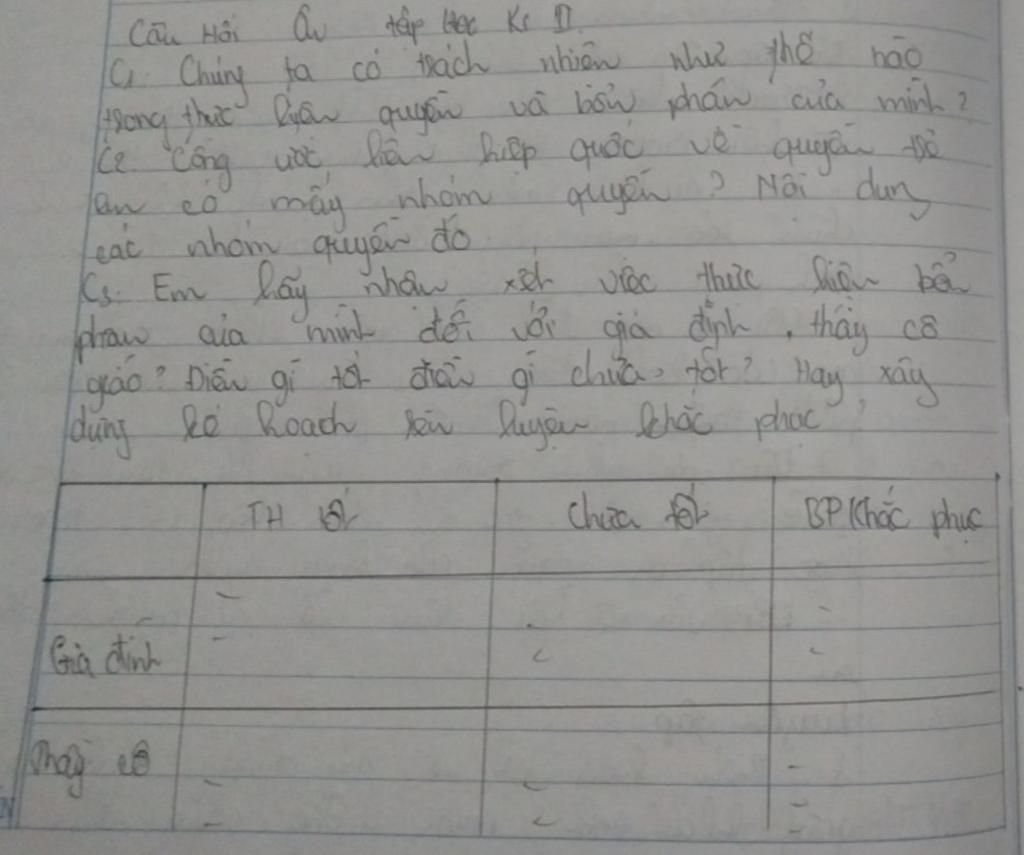 Câu Hỏi Ôn tập Học Kì II
C1. Chúng ta có trách nhiên như thế nào
trong thực hiện quyền và bổn phận của mình?
C2. Công ước liên hiệp quốc về quyền trẻ
em có mấy nhóm quyền? Nội dung
các nhóm quyền đó
C3. Em hãy nhận xét việc thực hiện bổn
phận của mình đối với gia đình, thầy cô
giáo? Điều gì tốt điều gì chưa tốt? Hãy xây
dựng kế hoạch rèn luyện khắc phục
TH tốt Chưa tốt BP khắc phục
Gia đình
Thầy cô